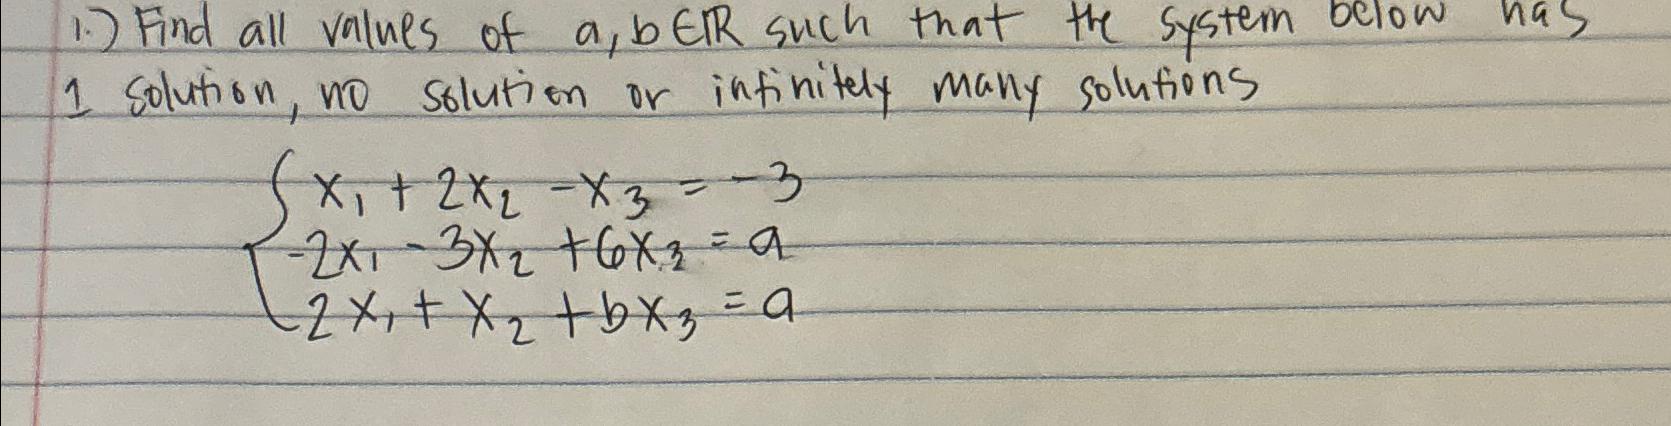 1.) Find all values of a, b ∈ ℝ such that the system below has
1 solution, no solution or infinitely many solutions
x₁ + 2x₂ - x₃ = -3
-2x₁ - 3x₂ + 6x₃ = a
2x₁ + x₂ + bx₃ = a